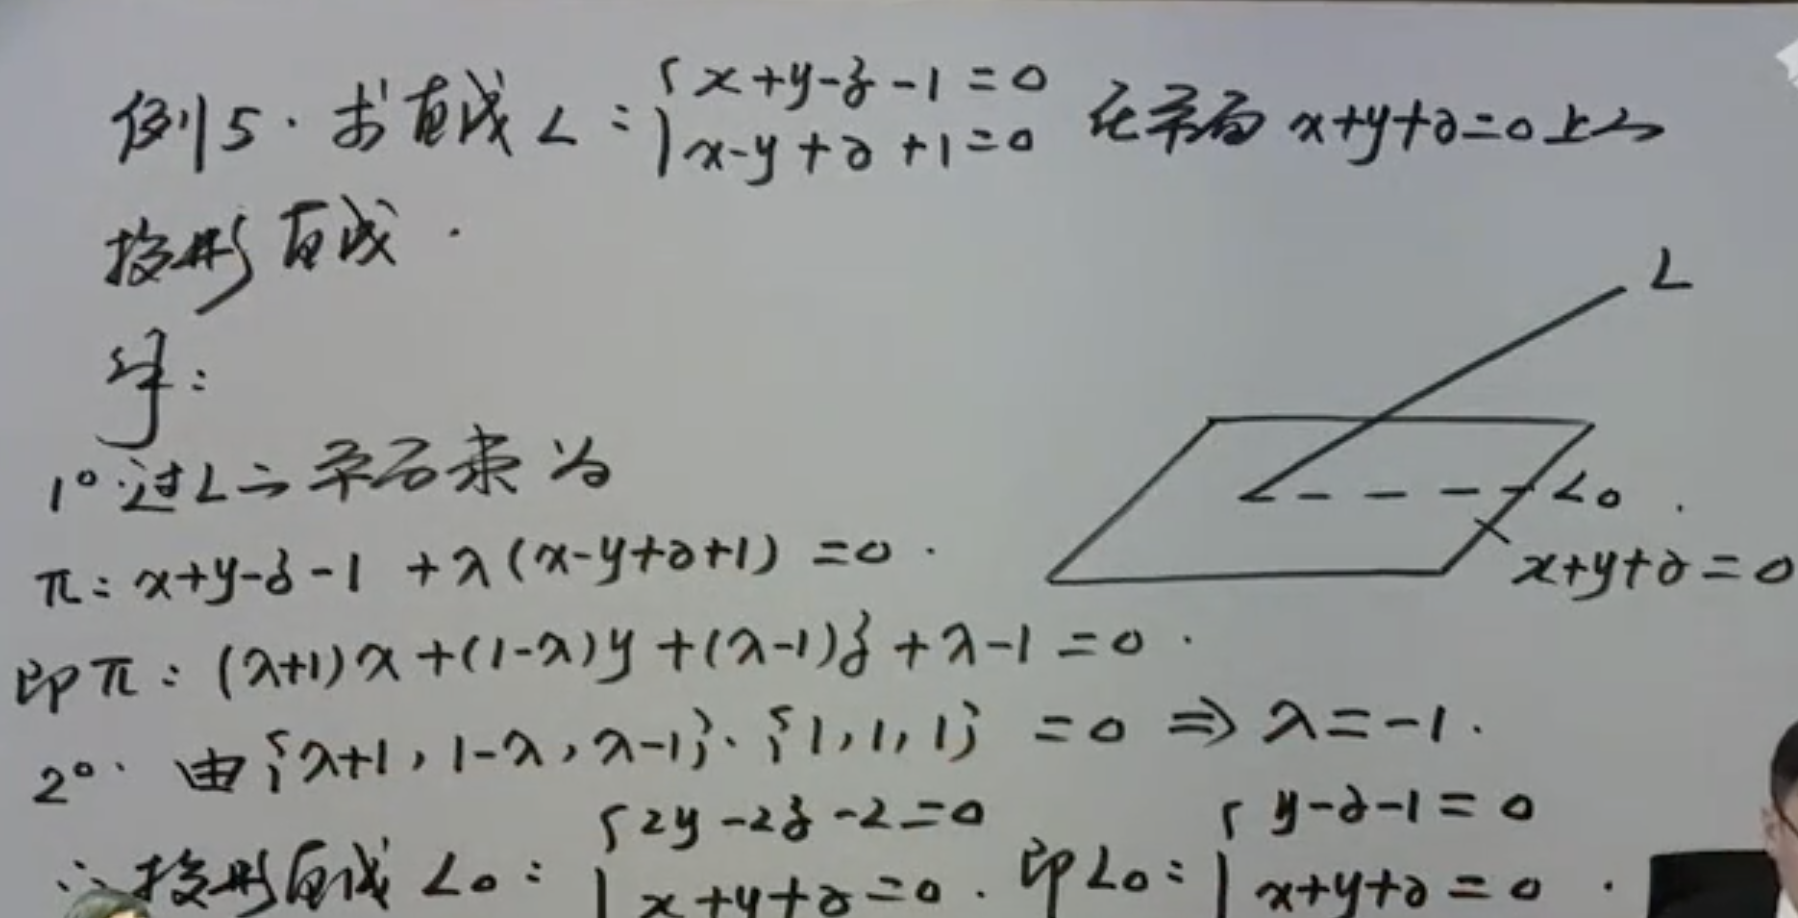 例5. 求直线 L: { x+y-z-1=0
x-y+z+1=0 在平面 x+y+z=0 上的
投影直线.
解:
1° 过L的平面束为
π: x+y-z-1 +λ(x-y+z+1) =0.
即π: (λ+1)x+(1-λ)y+(λ-1)z+λ-1=0.
2°. 由{λ+1, 1-λ, λ-1}·{1,1,1} =0 ⇒ λ=-1.
∴ 投影直线 L₀: { 2y-2z-2=0
x+y+z=0. 即L₀: { y-z-1=0
x+y+z=0.
L
L₀
x+y+z=0